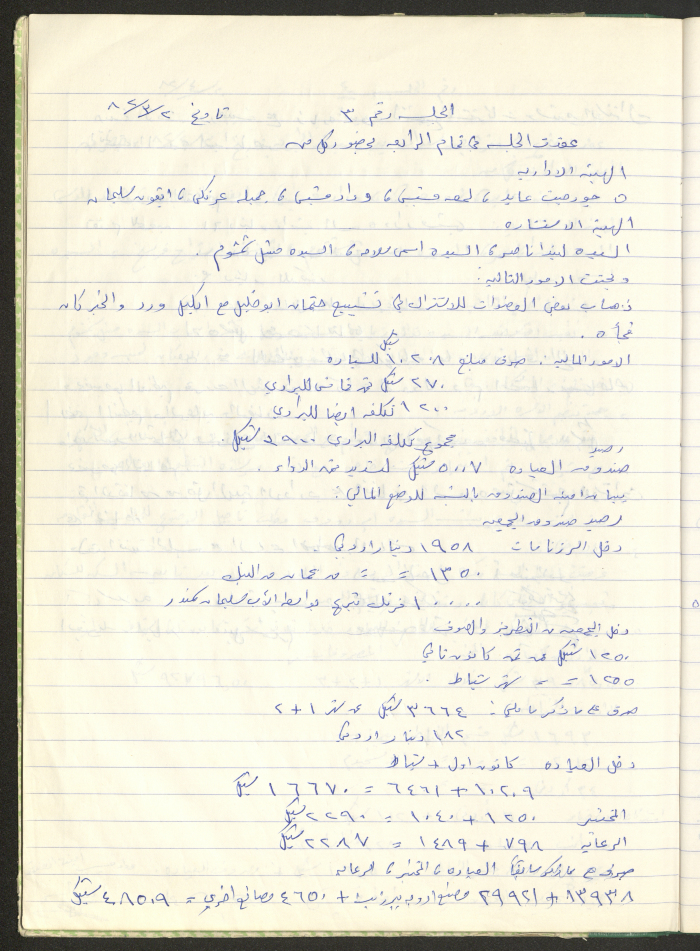 الجلسة رقم ٣ تاريخ ٨٢/٣/٢
عقدت الجلسة في تمام الرابعة بحضور كل من
الهيئة الادارية
جورجيت عابد، وداد قسيس، جميلة، ايفون سليمان
الهيئة الاستشارية
السيدة ليندا ناصر، السيدة اسمى سلامة، السيدة
وبحثت الامور التالية:
ذهاب بعض العضوات للاشتراك في تشييع جثمان ابو خليل مع اكليل ورد والخبر كان
فجأة.
الامور المالية: صرف مبلغ ١٠٢٠٨ شيكل للسيارة
٢٧٠٠ شيكل ثمن قماش للبرادي
١٢٠٠ تكلفة ايضا للبرادي
مجموع تكلفة البرادي ٣٩٠٠ شيكل.
رصيد
صندوق العيادة ٥٠٠٧ شيكل لتسديد ثمن الدواء.
بيان امينة الصندوق بالنسبة للوضع المالي:
رصيد صندوق الجمعية
دخل الرزنامات ١٩٥٨ دينار اردني.
١٣٥٠ = = من عمان من البنك
١٠٠٠٠ فرنك تبرع بواسطة الأب سليمان سمندر
دخل الجمعية من التطريز والصوف
١٢٥٠ شيكل عن شهر كانون ثاني
١٢٥٥ = = شهر شباط.
صرف على ما ذكر ما يلي: ٣٦٦٤ شيكل عن شهر ١+٢
١٨٢ دينار اردني
دخل العيادة كانون اول + شباط
١٠٢٠٩ + ٦٤٦١ = ١٦٦٧٠ شيكل
المختبر ١٢٥٠ + ١٠٤٠ = ٢٢٩٠ شيكل
الرعاية ٧٩٨ + ١٤٨٩ = ٢٢٨٧ شيكل
صرف على ما ذكر سابقاً العيادة، المختبر، الرعاية
١٣٩٣٨ + ٢٩٩٢١ مصنع ادوية بيرزيت + ٤٦٥٠ مصانع اخرى = ٤٨٥٠٩ شيكل